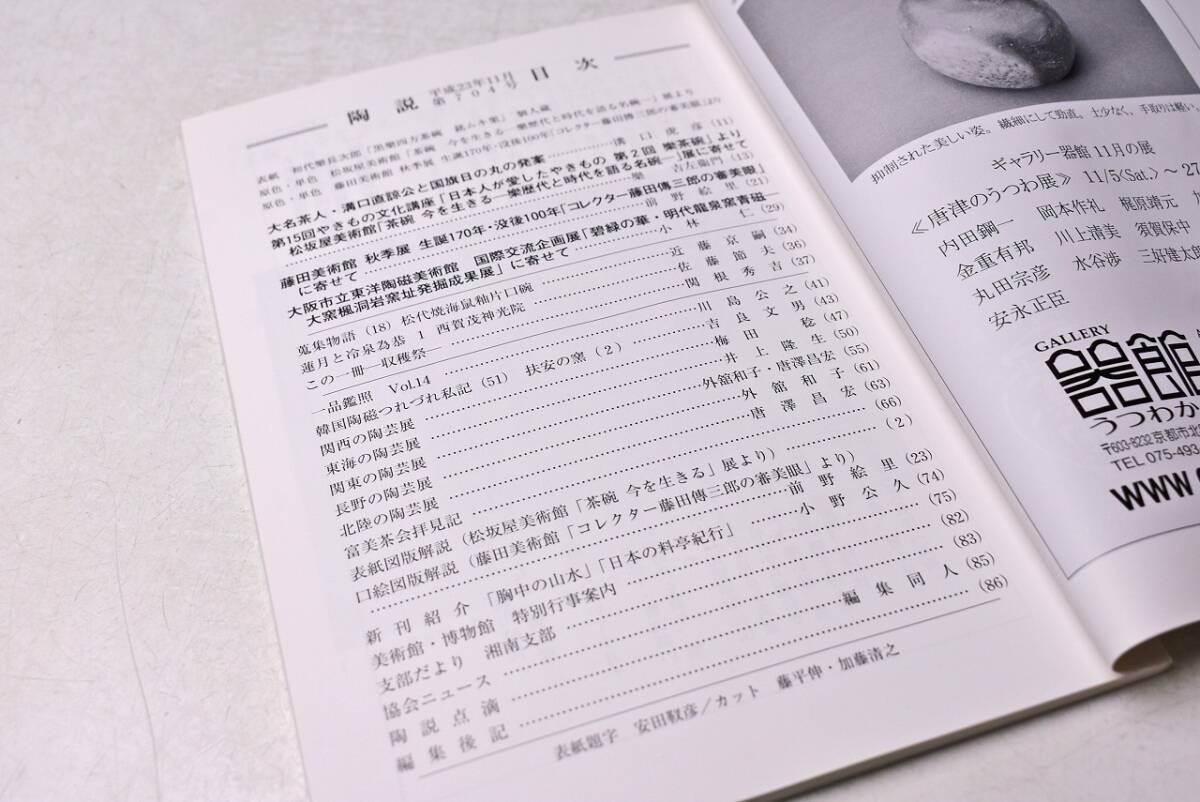 陶説 平成23年11月 第704号 目次
表紙 初代樂長次郎「黒樂四方茶碗 銘ムキ栗」 個人蔵
原色・単色 松坂屋美術館「茶碗 今を生きる―樂歴代と時代を語る名碗―」展より
原色・単色 藤田美術館 秋季展 生誕170年・没後100年「コレクター藤田傳三郎の審美眼」より
大名茶人・溝口直諒公と国旗日の丸の発案……溝口虎彦 (11)
第15回やきもの文化講座「日本人が愛したやきもの 第2回 樂茶碗」より
松坂屋美術館「茶碗 今を生きる―樂歴代と時代を語る名碗―」展に寄せて
……樂 吉左衞門 (13)
藤田美術館 秋季展 生誕170年・没後100年「コレクター藤田傳三郎の審美眼」
に寄せて……前野絵里 (21)
大阪市立東洋陶磁美術館 国際交流企画展「碧緑の華・明代龍泉窯青磁―
大窯楓洞岩窯址発掘成果展」に寄せて……小林 仁 (29)
蒐集物語 (18) 松代焼海鼠釉片口碗……近藤京嗣 (34)
蓮月と冷泉為恭 1 西賀茂神光院……佐藤節夫 (36)
この一冊―収穫祭―……関根秀吉 (37)
一品鑑照 Vol.14……川島公之 (41)
韓国陶磁つれづれ私記 (51) 扶安の窯 (2)……吉良文男 (43)
関西の陶芸展……梅田 稔 (47)
東海の陶芸展……井上隆生 (50)
関東の陶芸展……外舘和子・唐澤昌宏 (55)
長野の陶芸展……外舘和子 (61)
北陸の陶芸展……唐澤昌宏 (63)
富美茶会拝見記…… (66)
表紙図版解説 (松坂屋美術館「茶碗 今を生きる」展より)…… (2)
口絵図版解説 (藤田美術館「コレクター藤田傳三郎の審美眼」より)
……前野絵里 (23)
新刊紹介 「胸中の山水」「日本の料亭紀行」……小野公久 (74)
美術館・博物館 特別行事案内…… (75)
支部だより 湘南支部…… (82)
協会ニュース…… (83)
陶説点滴……編集同人 (85)
編集後記…… (86)
表紙題字 安田靫彦/カット 藤平伸・加藤清之
抑制された美しい姿。繊細にして勁直。土少なく、手取りは軽い。
ギャラリー器館 11月の展
≪唐津のうつわ展≫ 11/5〈Sat.〉～27
内田鋼一 岡本作礼 梶原靖元
金重有邦 川上清美 須賀保中
丸田宗彦 水谷渉 三好建太郎
安永正臣
GALLERY
器館
うつわか
〒603-8232 京都市北
TEL 075-493
WWW